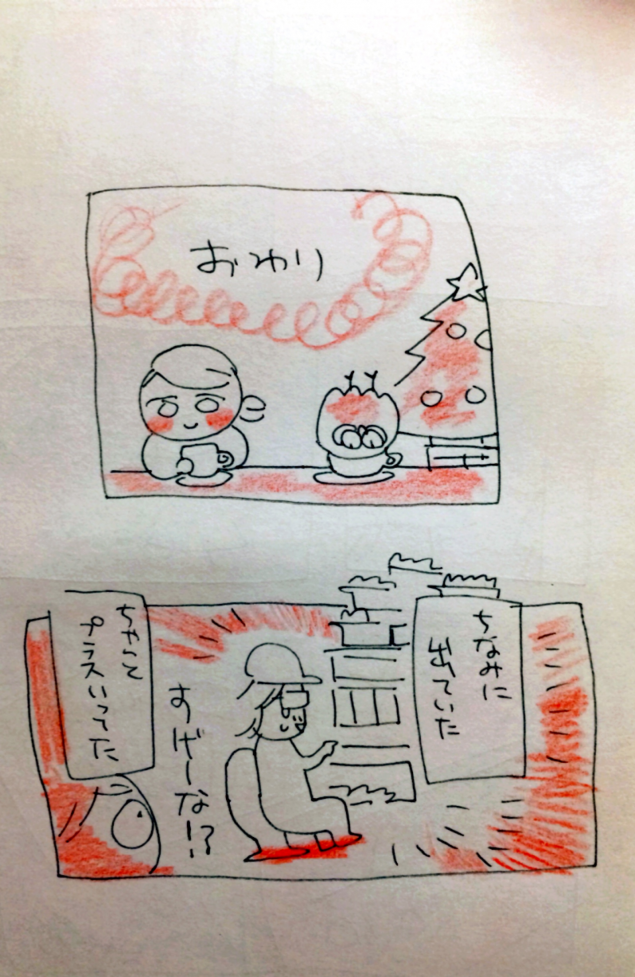 おわり
ちなみに
出ていた
すげーな!?
ちゃんと
プラスいってた